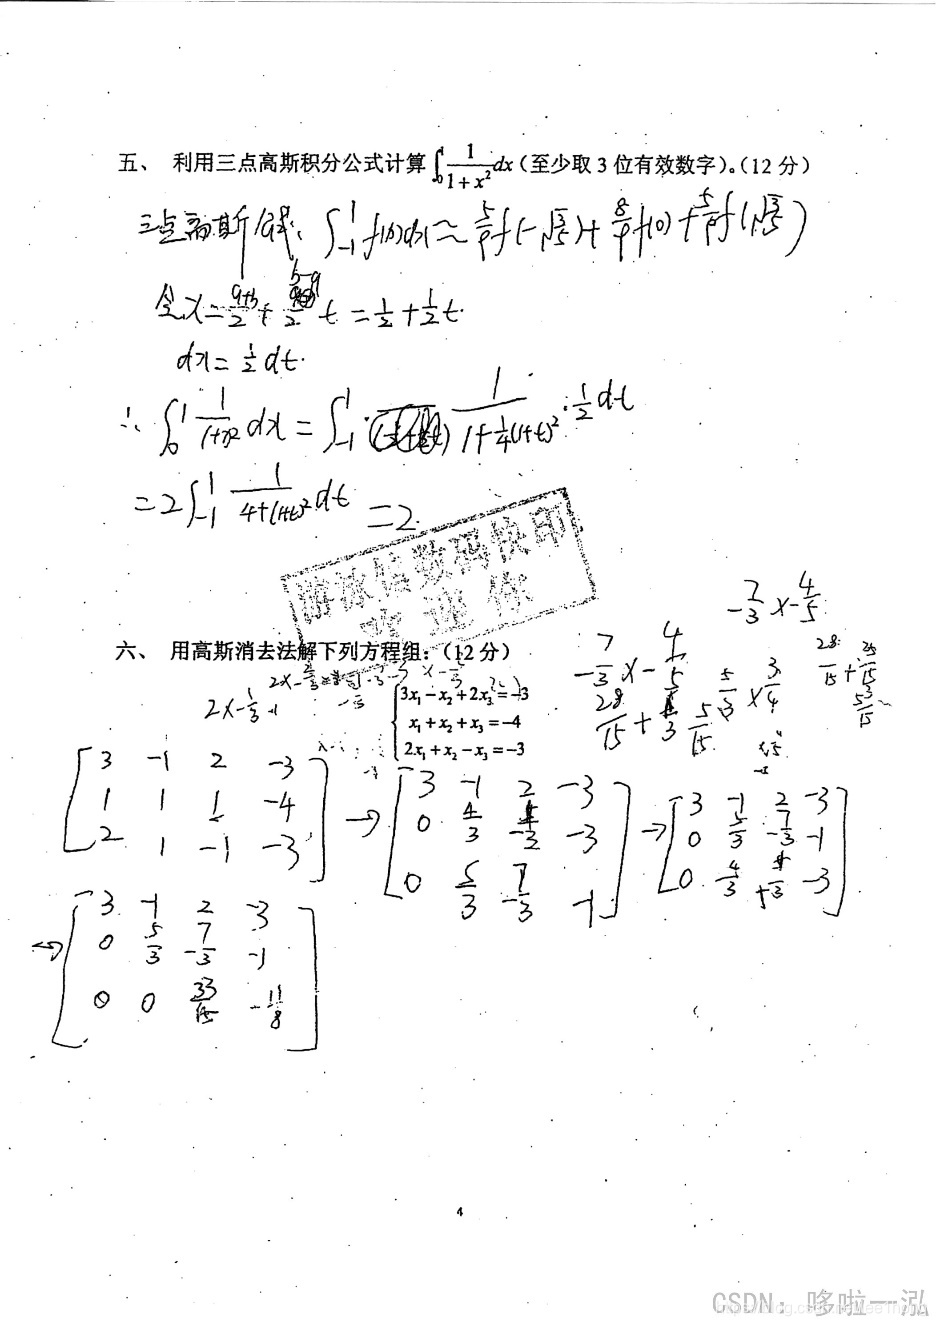 五、 利用三点高斯积分公式计算 ∫₀¹ 1/(1+x²) dx（至少取 3 位有效数字）。（12 分）
三点高斯公式: ∫₋₁¹ f(x)dx ≈ 5/9 f(-√(3/5)) + 8/9 f(0) + 5/9 f(√(3/5))
令 x = (a+b)/2 + (b-a)/2 t = 1/2 + 1/2 t
dx = 1/2 dt
∴ ∫₀¹ 1/(1+x²) dx = ∫₋₁¹ 1/(1+1/4(1+t)²) · 1/2 dt
= 2∫₋₁¹ 1/(4+(1+t)²) dt = 2
游泳馆数码快印
-7/3 × -4/5
六、 用高斯消去法解下列方程组：（12 分）
-7/3 × -4/5
28/15 +
2× -1/3 -1
5/3 × 3/4
3x₁ − x₂ + 2x₃ = −3
x₁ + x₂ + x₃ = −4
2x₁ + x₂ − x₃ = −3
3 -1 2 -3
1 1 1 -4
2 1 -1 -3
→ 3 -1 2 -3
0 4/3 1/3 -3
0 5/3 -7/3 -1
→ 3 -1 2 -3
0 5/3 -7/3 -1
0 4/3 +1/3 -3
→ 3 -1 2 -3
0 5/3 -7/3 -1
0 0 33/15 -11/8
4
CSDN：哆啦一泓